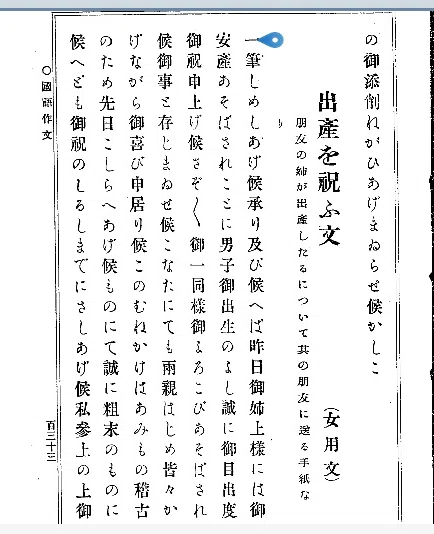 の御添削ねがひあげまゐらせ候かしこ
出產を祝ふ文
(女用文)
朋友の姉が出產したるについて其の朋友に送る手紙な
り
一筆しめしあげ候承り及び候へば昨日御姉上樣には御
安產あそばされことに男子御出生のよし誠に御目出度
御祝申上げ候さぞ〱御一同樣御よろこびあそばされ
候御事と存じまゐせ候こなたにても兩親はじめ皆々か
げながら御喜び申居り候このむねかけはあみもの稽古
のため先日こしらへあげ候ものにて誠に粗末のものに
候へども御祝のしるしまでにさしあげ候私參上の上御
○國語作文
百三十三